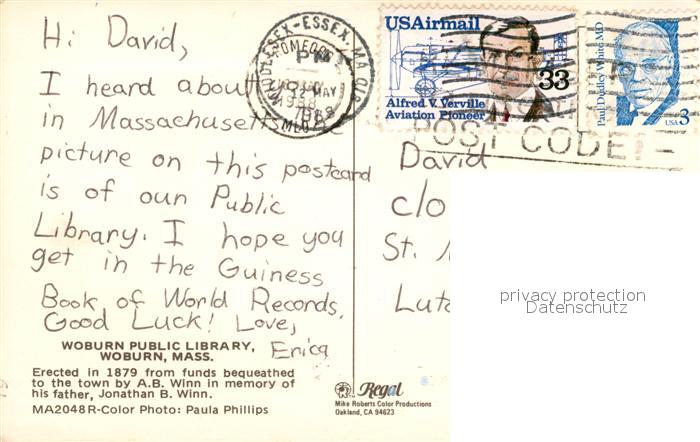 Hi David,
I heard about
in Massachusetts
picture on this postcard
is of our Public
Library. I hope you
get in the Guiness
Book of World Records.
Good Luck! Love,
Erica
WOBURN PUBLIC LIBRARY,
WOBURN, MASS.
Erected in 1879 from funds bequeathed
to the town by A.B. Winn in memory of
his father, Jonathan B. Winn.
MA2048R-Color Photo: Paula Phillips
MIDDLESEX-ESSEX MA
PM
12 MAY
1988
USAirmail
33
Alfred V. Verville
Aviation Pioneer
Paul Dudley White MD
USA 3
POST CODE!
David
clo
St.
Lut
privacy protection
Datenschutz
Regal
Mike Roberts Color Productions
Oakland, CA 94623